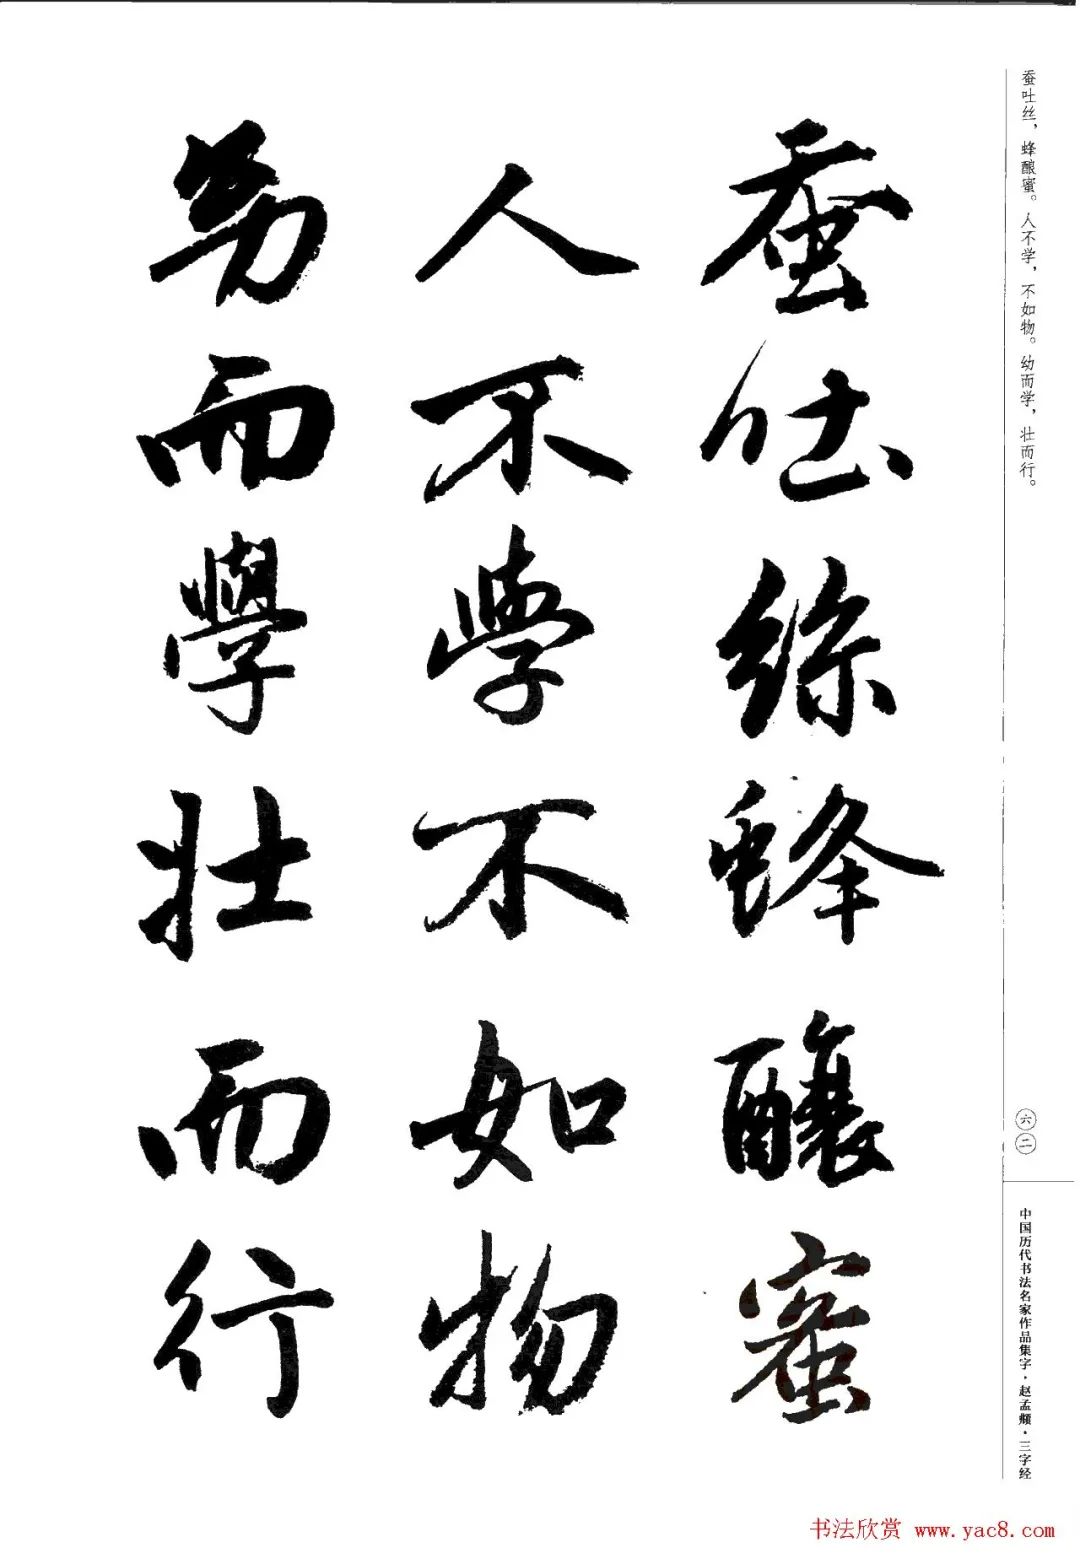 蚕吐丝，蜂酿蜜。人不学，不如物。幼而学，壮而行。
蚕吐絲蜂釀蜜
人不學不如物
幼而學壯而行
六二
中国历代书法名家作品集字·赵孟頫·三字经
书法欣赏 www.yac8.com